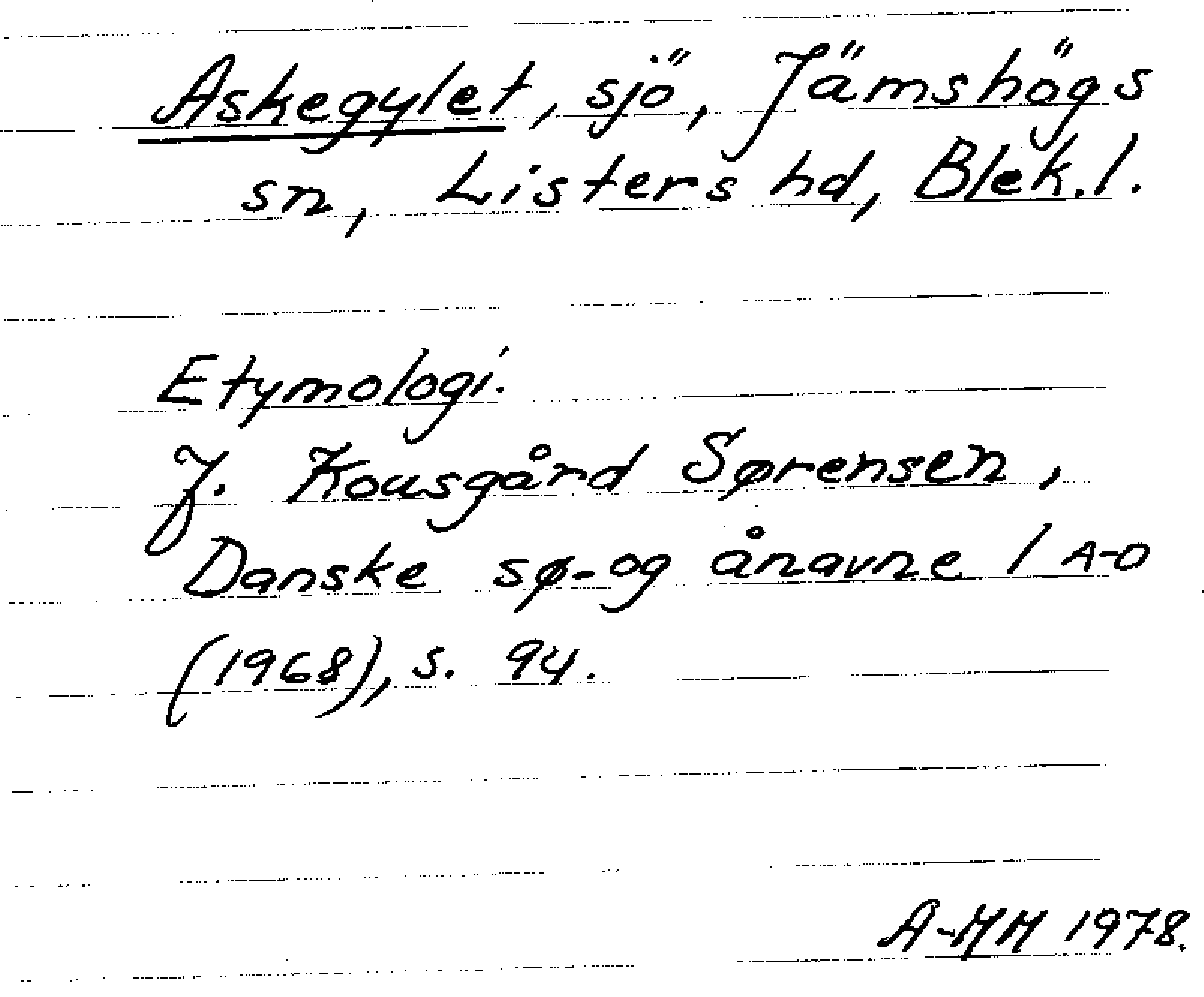 Askegylet, sjö, Jämshögs
sn, Listers hd, Blek.l.
Etymologi.
J. Kousgård Sørensen,
Danske sø- og ånavne 1 A-D
(1968), s. 94.
A-MH 1978.